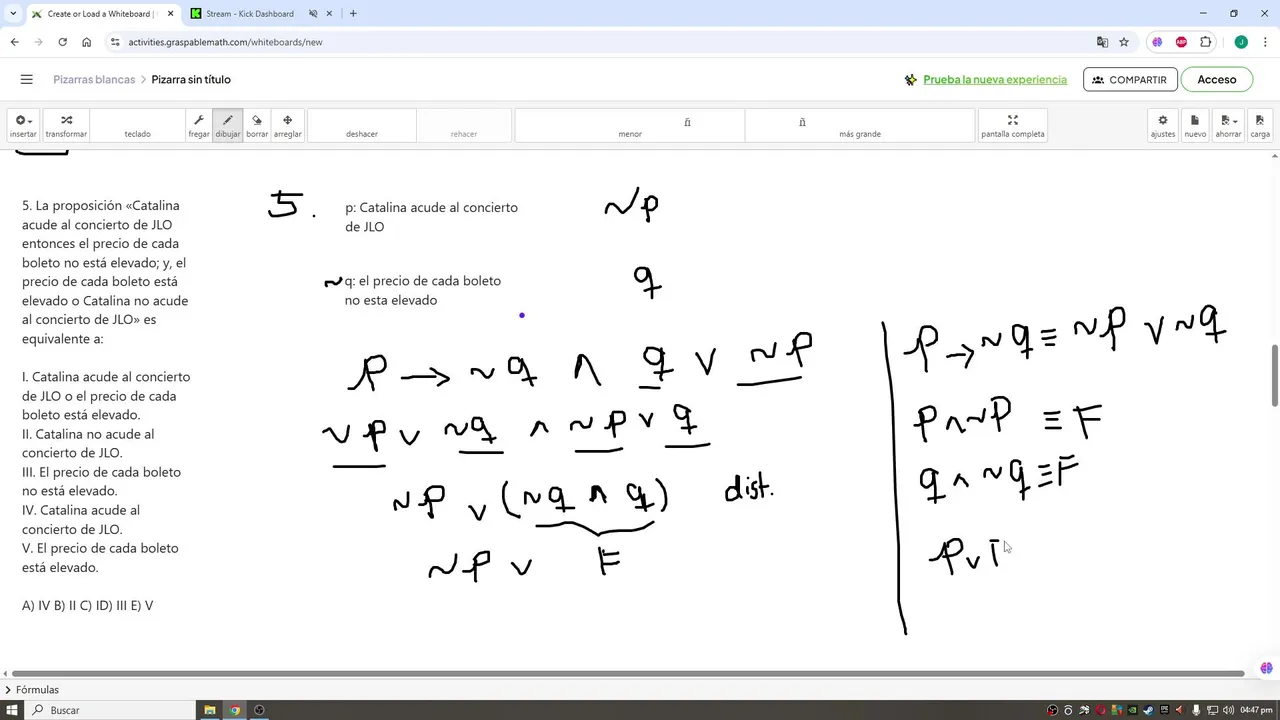 Create or Load a Whiteboard |
Stream - Kick Dashboard
activities.graspablemath.com/whiteboards/new
ABP
J
Pizarras blancas > Pizarra sin título
Prueba la nueva experiencia
COMPARTIR
Acceso
insertar
transformar
teclado
fregar
dibujar
borrar
arreglar
deshacer
rehacer
ñ
menor
ñ
más grande
pantalla completa
ajustes
nuevo
ahorrar
carga
5. La proposición «Catalina
acude al concierto de JLO
entonces el precio de cada
boleto no está elevado; y, el
precio de cada boleto está
elevado o Catalina no acude
al concierto de JLO» es
equivalente a:
I. Catalina acude al concierto
de JLO o el precio de cada
boleto está elevado.
II. Catalina no acude al
concierto de JLO.
III. El precio de cada boleto
no está elevado.
IV. Catalina acude al
concierto de JLO.
V. El precio de cada boleto
está elevado.
A) IV B) II C) ID) III E) V
5.
p: Catalina acude al concierto
de JLO
~p
~q: el precio de cada boleto
no esta elevado
q
P → ~q ∧ q ∨ ~P
~P ∨ ~q ∧ ~P ∨ q
~P ∨ (~q ∧ q) dist.
~P ∨ F
P → ~q ≡ ~P ∨ ~q
P ∧ ~P ≡ F
q ∧ ~q ≡ F
P ∨ F
Fórmulas
Buscar
04:47 pm